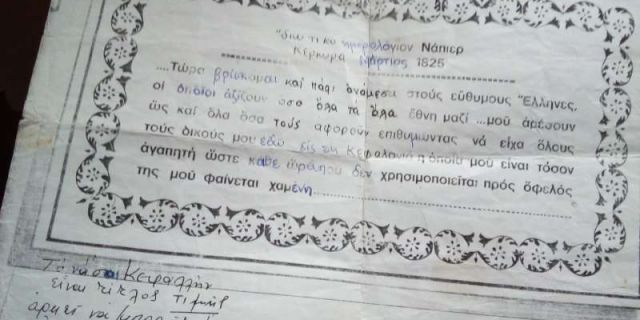 "διωτικο ημερολόγιον Νάπιερ
Κέρκυρα Μάρτιος 1825
....Τώρα βρίσκομαι και πάλι ἀνάμεσα στούς εὔθυμους Ἕλληνες,
οἱ ὁποῖοι ἀξίζουν ὅσο ὅλα τὰ ἄλλα ἔθνη μαζί ...μοῦ ἀρέσουν
ὡς καί ὅλα ὅσα τούς ἀφοροῦν ἐπιθυμώντας νά εἶχα ὅλους
τούς δικούς μου ἐδῶ εἰς τη Κεφαλονιά ἡ ὁποία μοῦ εἶναι τόσον
ἀγαπητή ὥστε κάθε ὥρα που δεν χρησιμοποιεῖται πρός ὄφελός
της μοῦ φαίνεται χαμένη
Τό νά σαι Κεφαλλήν
είναι τίτλος τιμής
αρκεί να